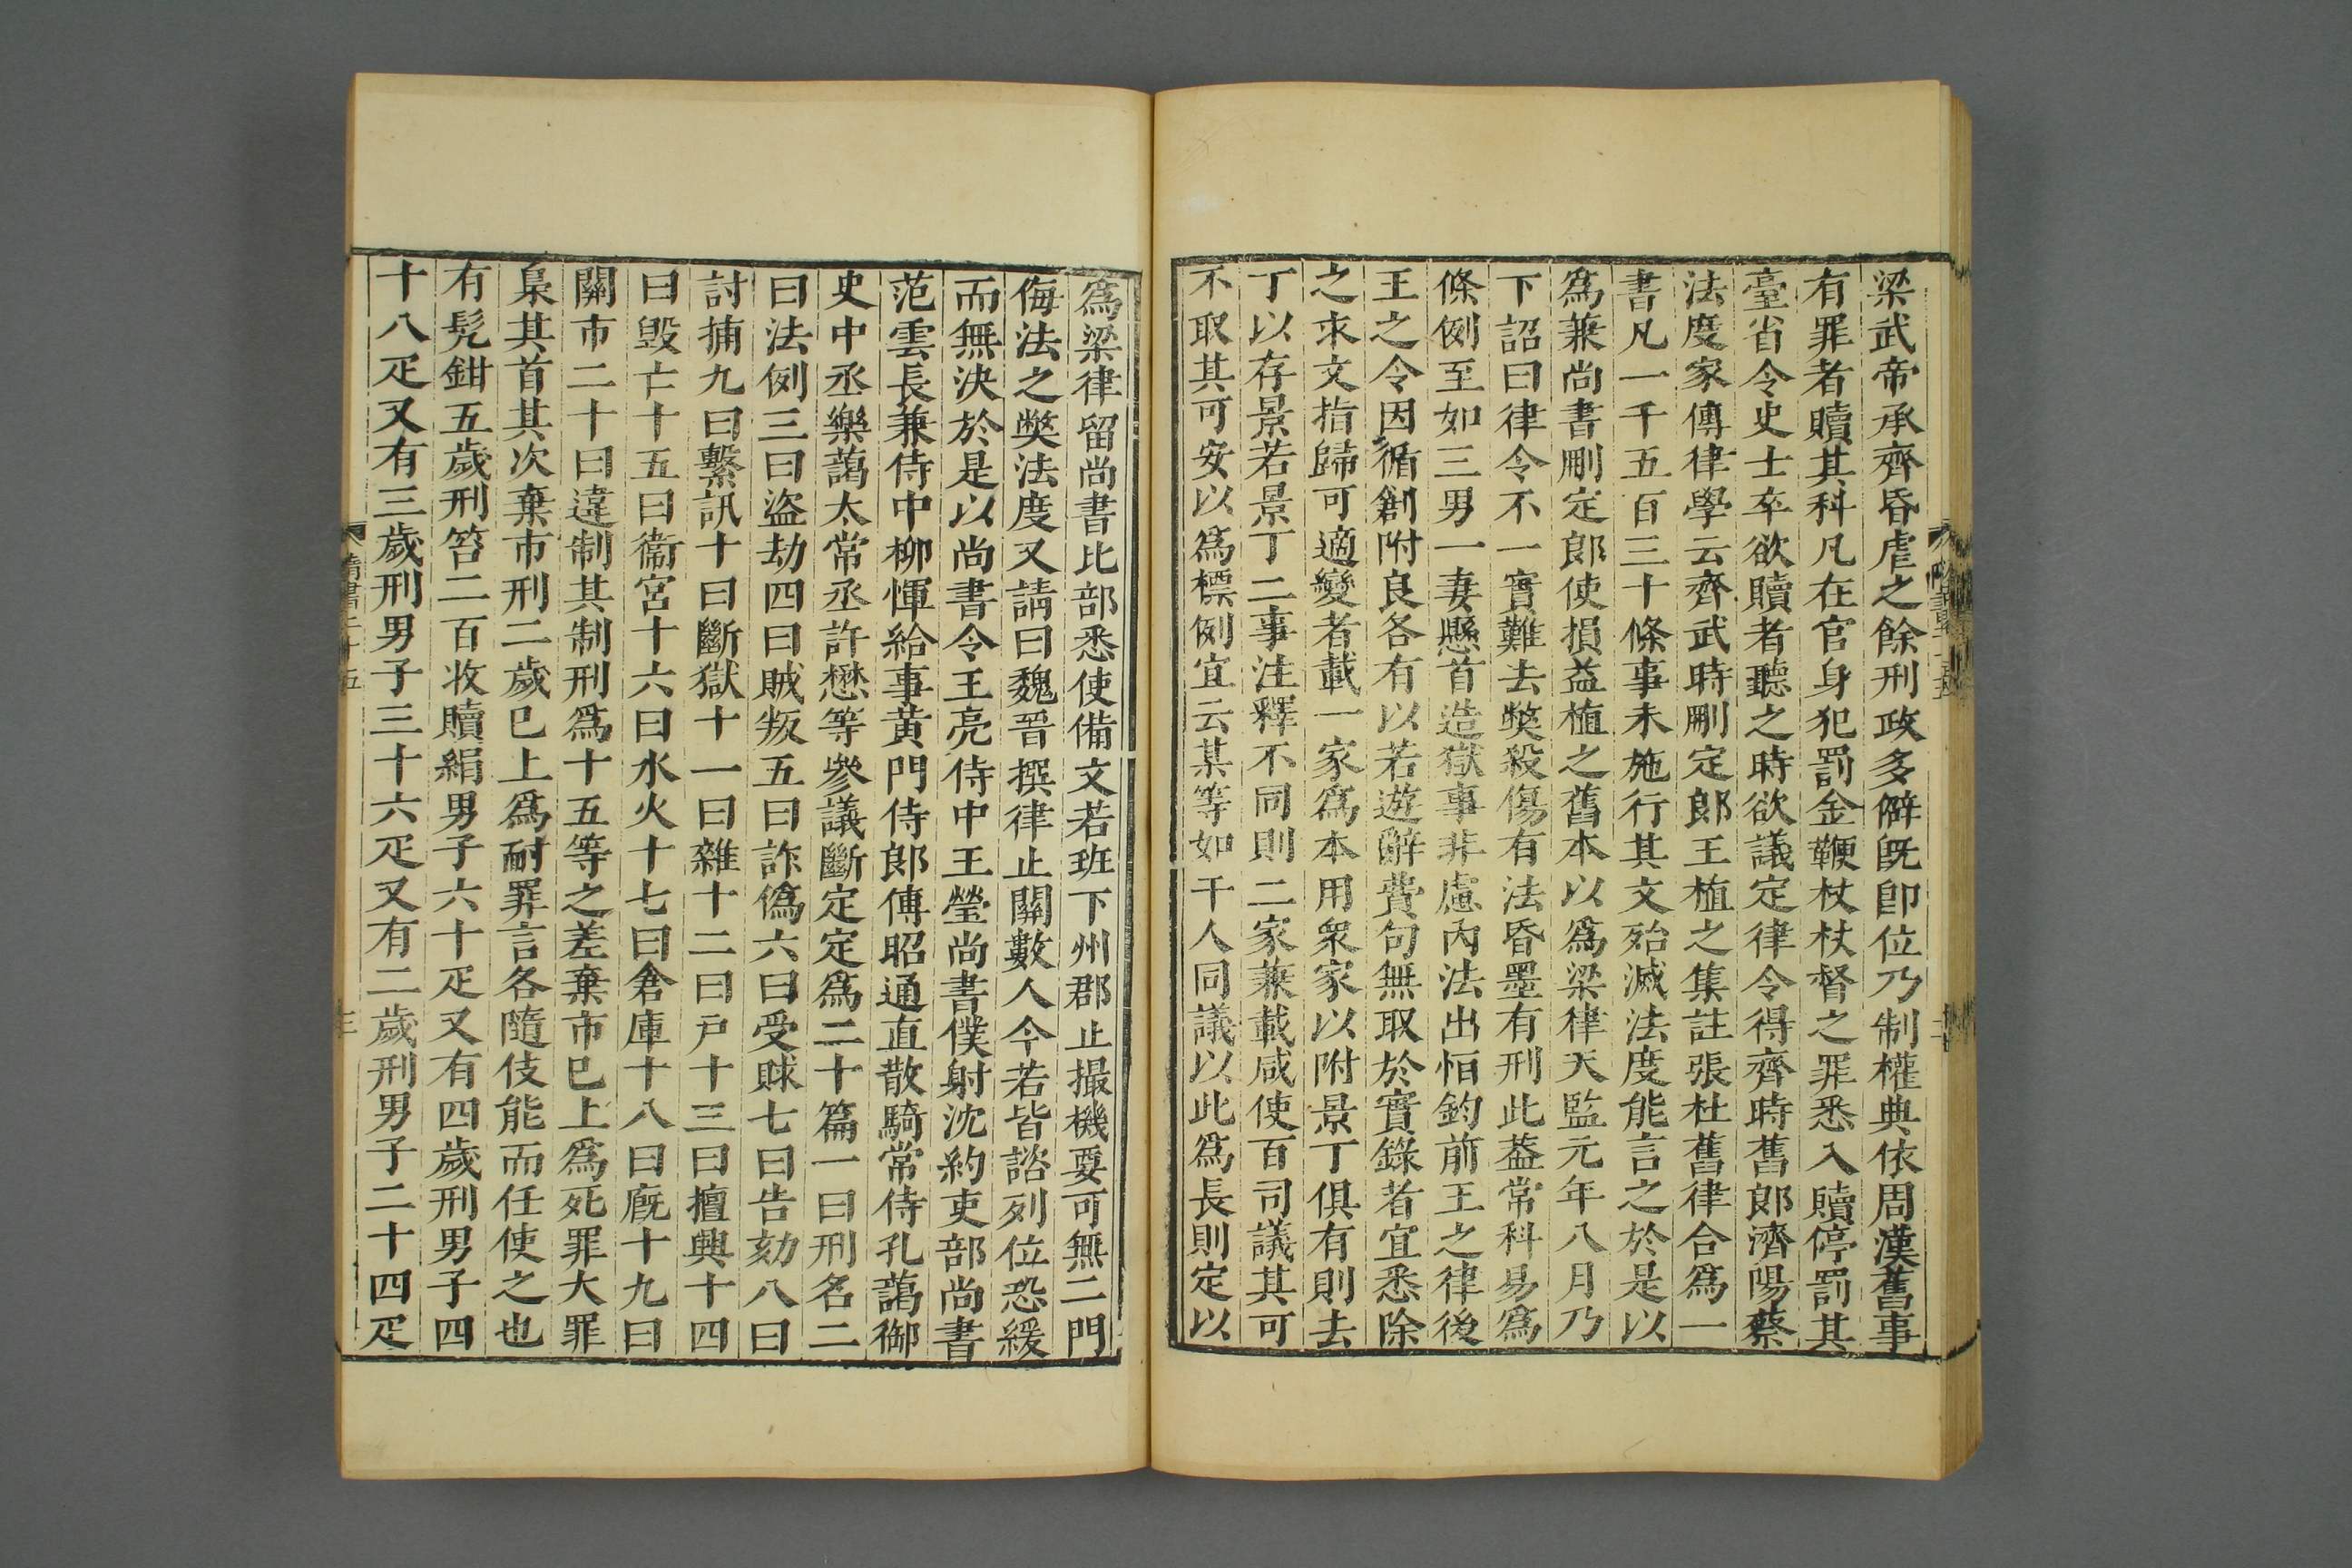 梁武帝承齊昏虐之餘刑政多僻旣卽位乃制權典依周漢舊事
有罪者贖其科凡在官身犯罰金鞭杖杖督之罪悉入贖停罰其
臺省令史士卒欲贖者聽之時欲議定律令得齊時舊郎濟陽蔡
法度家傳律學云齊武時刪定郎王植之集註張杜舊律合爲一
書凡一千五百三十條事未施行其文殆滅法度能言之於是以
爲兼尚書刪定郎使損益植之舊本以爲梁律天監元年八月乃
下詔曰律令不一實難去獘殺傷有法昏墨有刑此葢常科易爲
條例至如三男一妻懸首造獄事非慮內法出恒鈞前王之律後
王之令因循創附良各有以若遊辭費句無取於實錄者宜悉除
之求文指歸可適變者載一家爲本用衆家以附景丁俱有則去
丁以存景若景丁二事注釋不同則二家兼載咸使百司議其可
不取其可安以爲標例宜云某等如干人同議以此爲長則定以
爲梁律留尚書比部悉使備文若班下州郡止撮機要可無二門
侮法之獘法度又請曰魏晉撰律止關數人今若皆諮列位恐緩
而無決於是以尚書令王亮侍中王瑩尚書僕射沈約吏部尚書
范雲長兼侍中柳惲給事黃門侍郎傅昭通直散騎常侍孔藹御
史中丞樂藹太常丞許懋等參議斷定定爲二十篇一曰刑名二
曰法例三曰盜劫四曰賊叛五曰詐僞六曰受賕七曰告劾八曰
討捕九曰繫訊十曰斷獄十一曰雜十二曰戸十三曰擅興十四
曰毀亡十五曰衞宮十六曰水火十七曰倉庫十八曰廐十九曰
關市二十曰違制其制刑爲十五等之差棄市已上爲死罪大罪
梟其首其次棄市刑二歲已上爲耐罪言各隨伎能而任使之也
有髡鉗五歲刑笞二百收贖絹男子六十疋又有四歲刑男子四
十八疋又有三歲刑男子三十六疋又有二歲刑男子二十四疋
隋書二十五